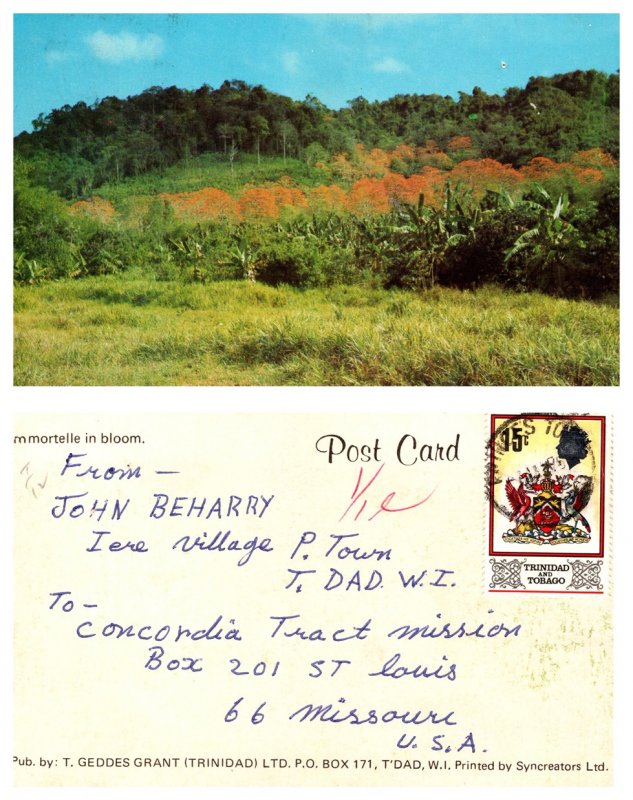 mmortelle in bloom.
Post Card
From -
JOHN BEHARRY
Iere Village P. Town
T. DAD. W.I.
To -
Concordia Tract mission
Box 201 ST louis
66 missouri
U.S.A.
15c
TRINIDAD
AND
TOBAGO
Pub. by: T. GEDDES GRANT (TRINIDAD) LTD. P.O. BOX 171, T'DAD, W.I. Printed by Syncreators Ltd.